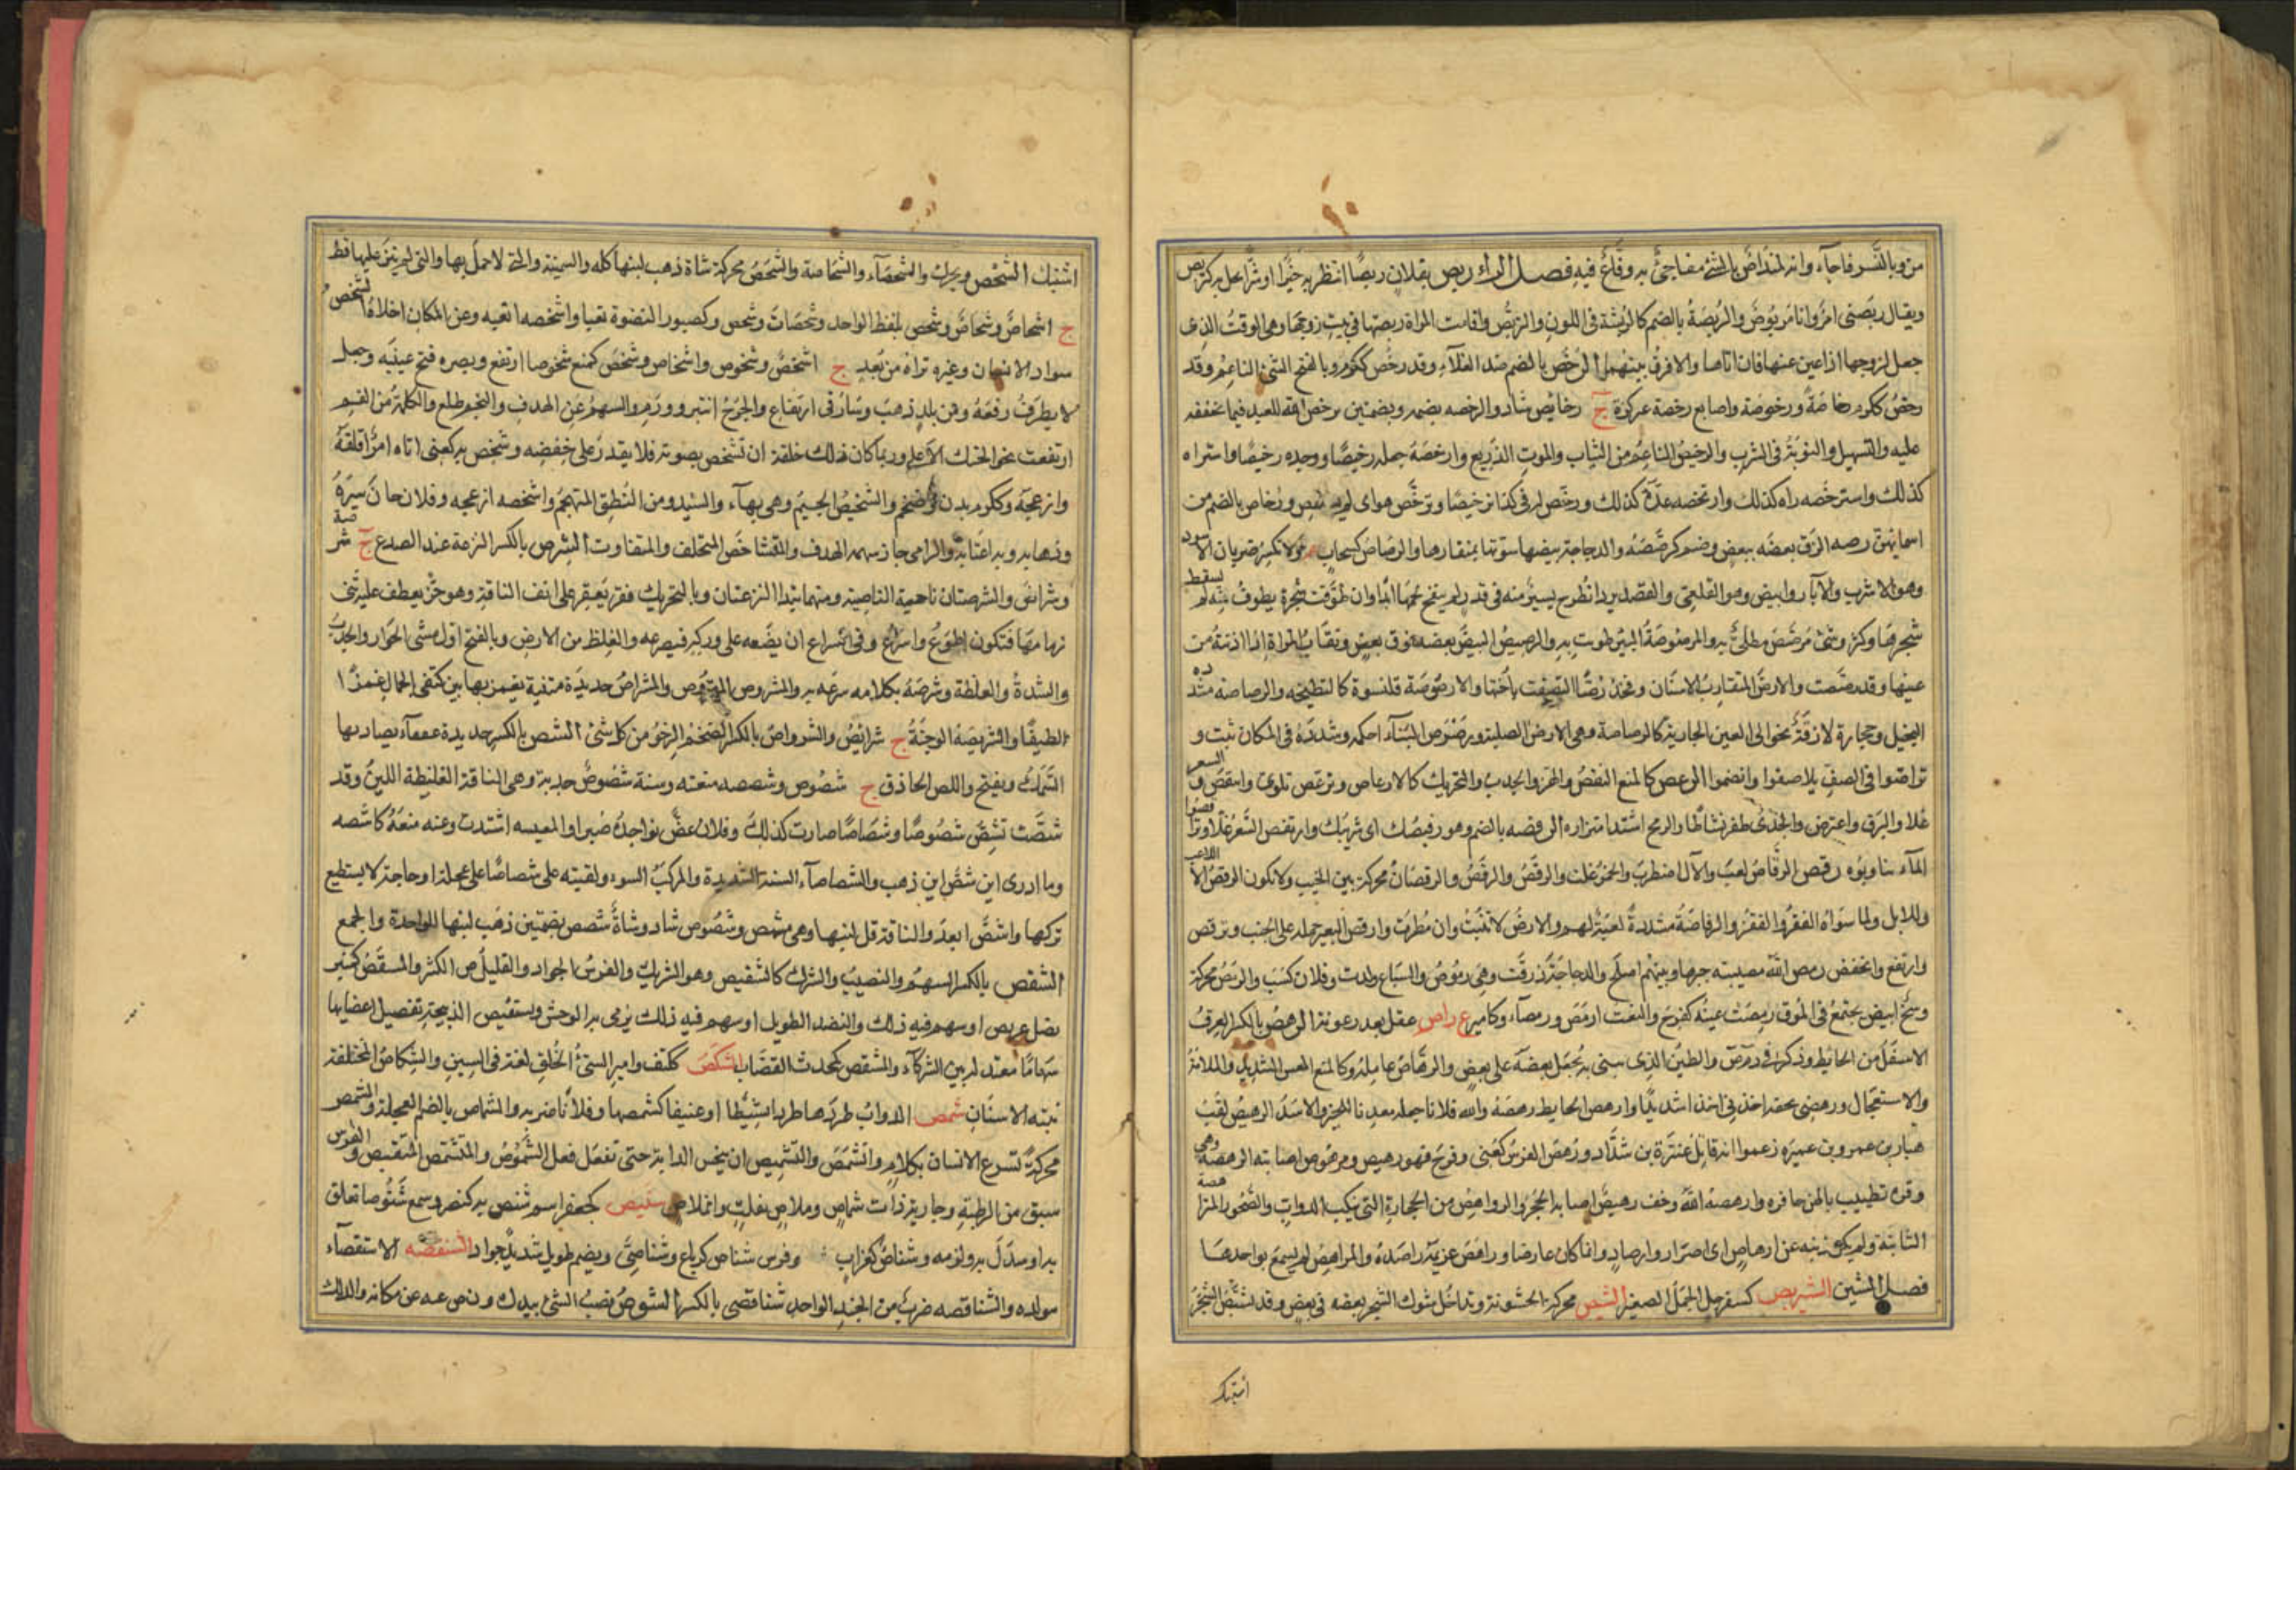 من وبالشر فاجأه وانه لمنداص بالشئ مفاجئ به وقاع فيه فصل الراء ربص بفلان ربصا انتظر به خيرا او شرا يحل به كتربص
ويقال ربصنى امر وانا مربوص والربصة بالضم كالربشة فى اللون والتربص واقامت المراة ربصتها فى بيت زوجها وهى الوقت الذى
جعل لزوجها اذا عنن عنها فان اتاها والا فرق بينهما الرخص بالضم ضد الغلاء وقد رخص ككرم وبالفتح الشئ الناعم وقد
رخص ككرم رخاصة ورخوصة واصابع رخصة غير كزة ج رخائص شاذ والرخصه بضمه وبضمتين ترخيص الله للعبد فيما يخففه
عليه والتسهيل والنوبة فى الشرب والرخيص الناعم من الثياب والموت الذريع وارخصه جعله رخيصا ووجده رخيصا واشتراه
كذلك واسترخصه راه كذلك وارتخصه عده كذلك ورخص له فى كذا ترخيصا وترخص هو اى لم يستقص ورخاص بالضم من
اسمائهن رصه الزق بعضه ببعض وضم كرصصه والدجاجة بيضها سوتها بمنقارها والرصاص كسحاب ولا تكسر ضربان الاسود
وهو الاسرب والآبار وابيض وهو القلعى والقصدير ان طرح يسير منه فى قدر لم ينضج لحمها ابدا وان طوقت شجرة بطوف منه لم يسقط
ثمرها وكثر وشئ مرصص مطلى به والمرصوصة البئر طويت به والرصيص البيض بعضه فوق بعض ونقاب المراة اذا ادنته من
عينها وقد رصصت والارص المتقارب الاسنان وفخذ رصاء التصقت باختها والارصوصة قلنسوة كالبطيخه والرصاصة مشددة
البخيل وحجارة لازقة بحوالى العين الجارية كالرصاصة وهى الارض الصلبة ورصرص البناء احكمه وشدده وفى المكان ثبت و
تراصوا فى الصف تلاصقوا وانضموا الرعص كالمنع النفض والهز والجذب والتحريك كالارعاص وترعص تلوى وانتفض والسعر
غلا والبرق واعترض والجدى طفر نشاطا والرمح اشتد اهتزازه الرفصه بالضم وهو رفيصك اى شريبك وارتفص السعر غلا وترافصوا
الماء تناوبوه رقص الرقاص لعب والآل اضطرب والخمر غلت والرقص والرقص والرقصان محركة بين الخبب ولا يكون الرقص الا للاعب
وللابل ولما سواه القفز والنقز والرقاصة مشددة لعبة لهم والارض لا تنبت وان مطرت وارقص البعير حمله على الخبب وترقص
وارتفع وانخفض رمص الله مصيبته جبرها وبينهم اصلح والدجاجة ذرقت وهى رموص والسباع ولدت وفلان كسب والرمص محركة
وسخ ابيض يجتمع فى الموق رمصت عينه كفرح والنعت ارمص ورمصاء وكامير ع راص عقل بعد رعونة الرهص بالكسر العرق
الاسفل من الحائط وذكر فى د م ص والطين الذى يبنى به يجعل بعضه على بعض والرهاص عامله وكالمنع العصر الشديد والملامة
والاستعجال ورهصنى بحقه اخذنى اخذا شديدا وارهص الحايط رهصه والله فلانا جعله معدنا للخير والاسد الرهيص لقب
هبار بن عمرو بن عميره زعموا انه قاتل عنترة بن شداد ورهص الفرس كعنى وفرح فهو رهيص ومرهوص اصابته الرهصة وهى
وقرة تصيب باطن حافره وارهصه الله وخف رهيص اصابه الحجر والرواهص من الحجارة التى تنكب الدواب والصخور المتراهصة
الثابتة ولم يكن ذنبه عن ارهاص اى اصرار وارصاد وانما كان عارضا وراهص غريمه راصده والمراهص لم يسمع بواحدها
فصل الشين الشبربص كسفرجل الجمل الصغير الشبص محركة الخشونة وتداخل شوك الشجر بعضه فى بعض وقد تشبص الشجر
اشتبك
اشتبك الشخص ويحرك والشحصاء والشحاصة والشحص محركة شاة ذهب لبنها كله والسمينة والتى لا حمل بها والتى لم ينز عليها قط
ج اشحاص وشحاص وشحص بلفظ الواحد وشحصات وشحص وكصبور النضوة تعبا واشحصه اتعبه وعن المكان اجلاه الشخص
سواد الانسان وغيره تراه من بعد ج اشخص وشخوص واشخاص وشخص كمنع شخوصا ارتفع وبصره فتح عينيه وجعل
لا يطرف وبصره رفعه ومن بلد ذهب وسار فى ارتفاع والجرح انتبر وورم والسهم عن الهدف والنجم طلع والكلمة من الفم
ارتفعت نحو الحنك الاعلى وربما كان ذلك خلقة ان تشخص بصوته فلا يقدر على خفضه وشخص به كعنى اتاه امر اقلقه
وازعجه وككرم بدن وضخم والشخيص الجسيم وهى بهاء والسيد ومن المنطق المتجهم واشخصه ازعجه وفلان حان سيره
وذهابه وبه اغتابه والرامى جاز سهمه الهدف والمتشاخص المختلف والمتفاوت الشرص بالكسر النزعة عند الصدغ ج شرصة
وشراص والشرصتان ناحية الناصية ومنهما تبدا النزعتان وبالتحريك فقر يفقر على انف الناقة وهو حز يعطف عليه ثنى
زمامها فتكون اطوع واسرع وفى الصراع ان يضعه على وركه فيصرعه والغلظ من الارض وبالفتح اول مشى الحوار والجذب
والشدة والغلظة وشرصه بكلامه سبعه به والمشروص والمشراص حديدة مثنية يغمز بها بين كتفى الحمار غمزا
لطيفا والشريصة الوجنة ج شرائص والشرواص بالكسر الضخم الرخو من كل شئ الشص بالكسر حديدة عقفاء يصاد بها
السمك ويفتح واللص الحاذق ج شصوص وشصصه منعه وسنة شصوص جدبة وهى الناقة الغليظة اللبن وقد
شصت تشص شصوصا وشصاصا صارت كذلك وفلان عض نواجذه صبرا والمعيسه اشتدت وعنه منعه كاشصه
وما ادرى اين شص اين ذهب والشصاصاء السنة الشديدة والمركب السوء ولقيته على شصاصاء على عجلة او حاجة لا يستطيع
تركها واشص ابعد والناقة قل لبنها وهى مشص وشصوص شاذ وشاة شصص بضمتين ذهب لبنها للواحدة والجمع
الشقص بالكسر السهم والنصيب والشرك كالشقيص وهو الشريك والفرس الجواد والقليل من الكثير والمشقص كمنبر
نصل عريض او سهم فيه ذلك والنصل الطويل او سهم فيه ذلك يرمى به الوحش وتشقيص الذبيحة تفصيل اعضائها
سهاما معتدلة بين الشركاء والمشقص كمحدث القصاب الشكص ككتف وامير السئ الخلق لغة فى السين والشكاص المختلفة
نبتة الاسنان شمص الدواب طردها طردا نشيطا او عنيفا كشمصها وفلانا ضربه والشماص بالضم العجلة والشمص
محركة تسرع الانسان بكلام وانشمص والتشميص ان ينخس الدابة حتى تفعل فعل الشموص والمتشمص المتقبض والفرس
سبق من الرطبة وجارية ذات شماص وملاص تفلت وانملاص شنبص كجعفر اسم شنص به كنصر وسمع شنوصا تعلق
به او سدك به ولزمه وشناص كغراب ع وفرس شناص كرباع وشناصى ويضم طويل شديد جواد الشنقصه الاستقصاء
مولدة والشناقصه ضرب من الجند الواحد شنقاصى بالكسر الشوص نصب الشئ بيدك ونصعه عن مكانه والدلك